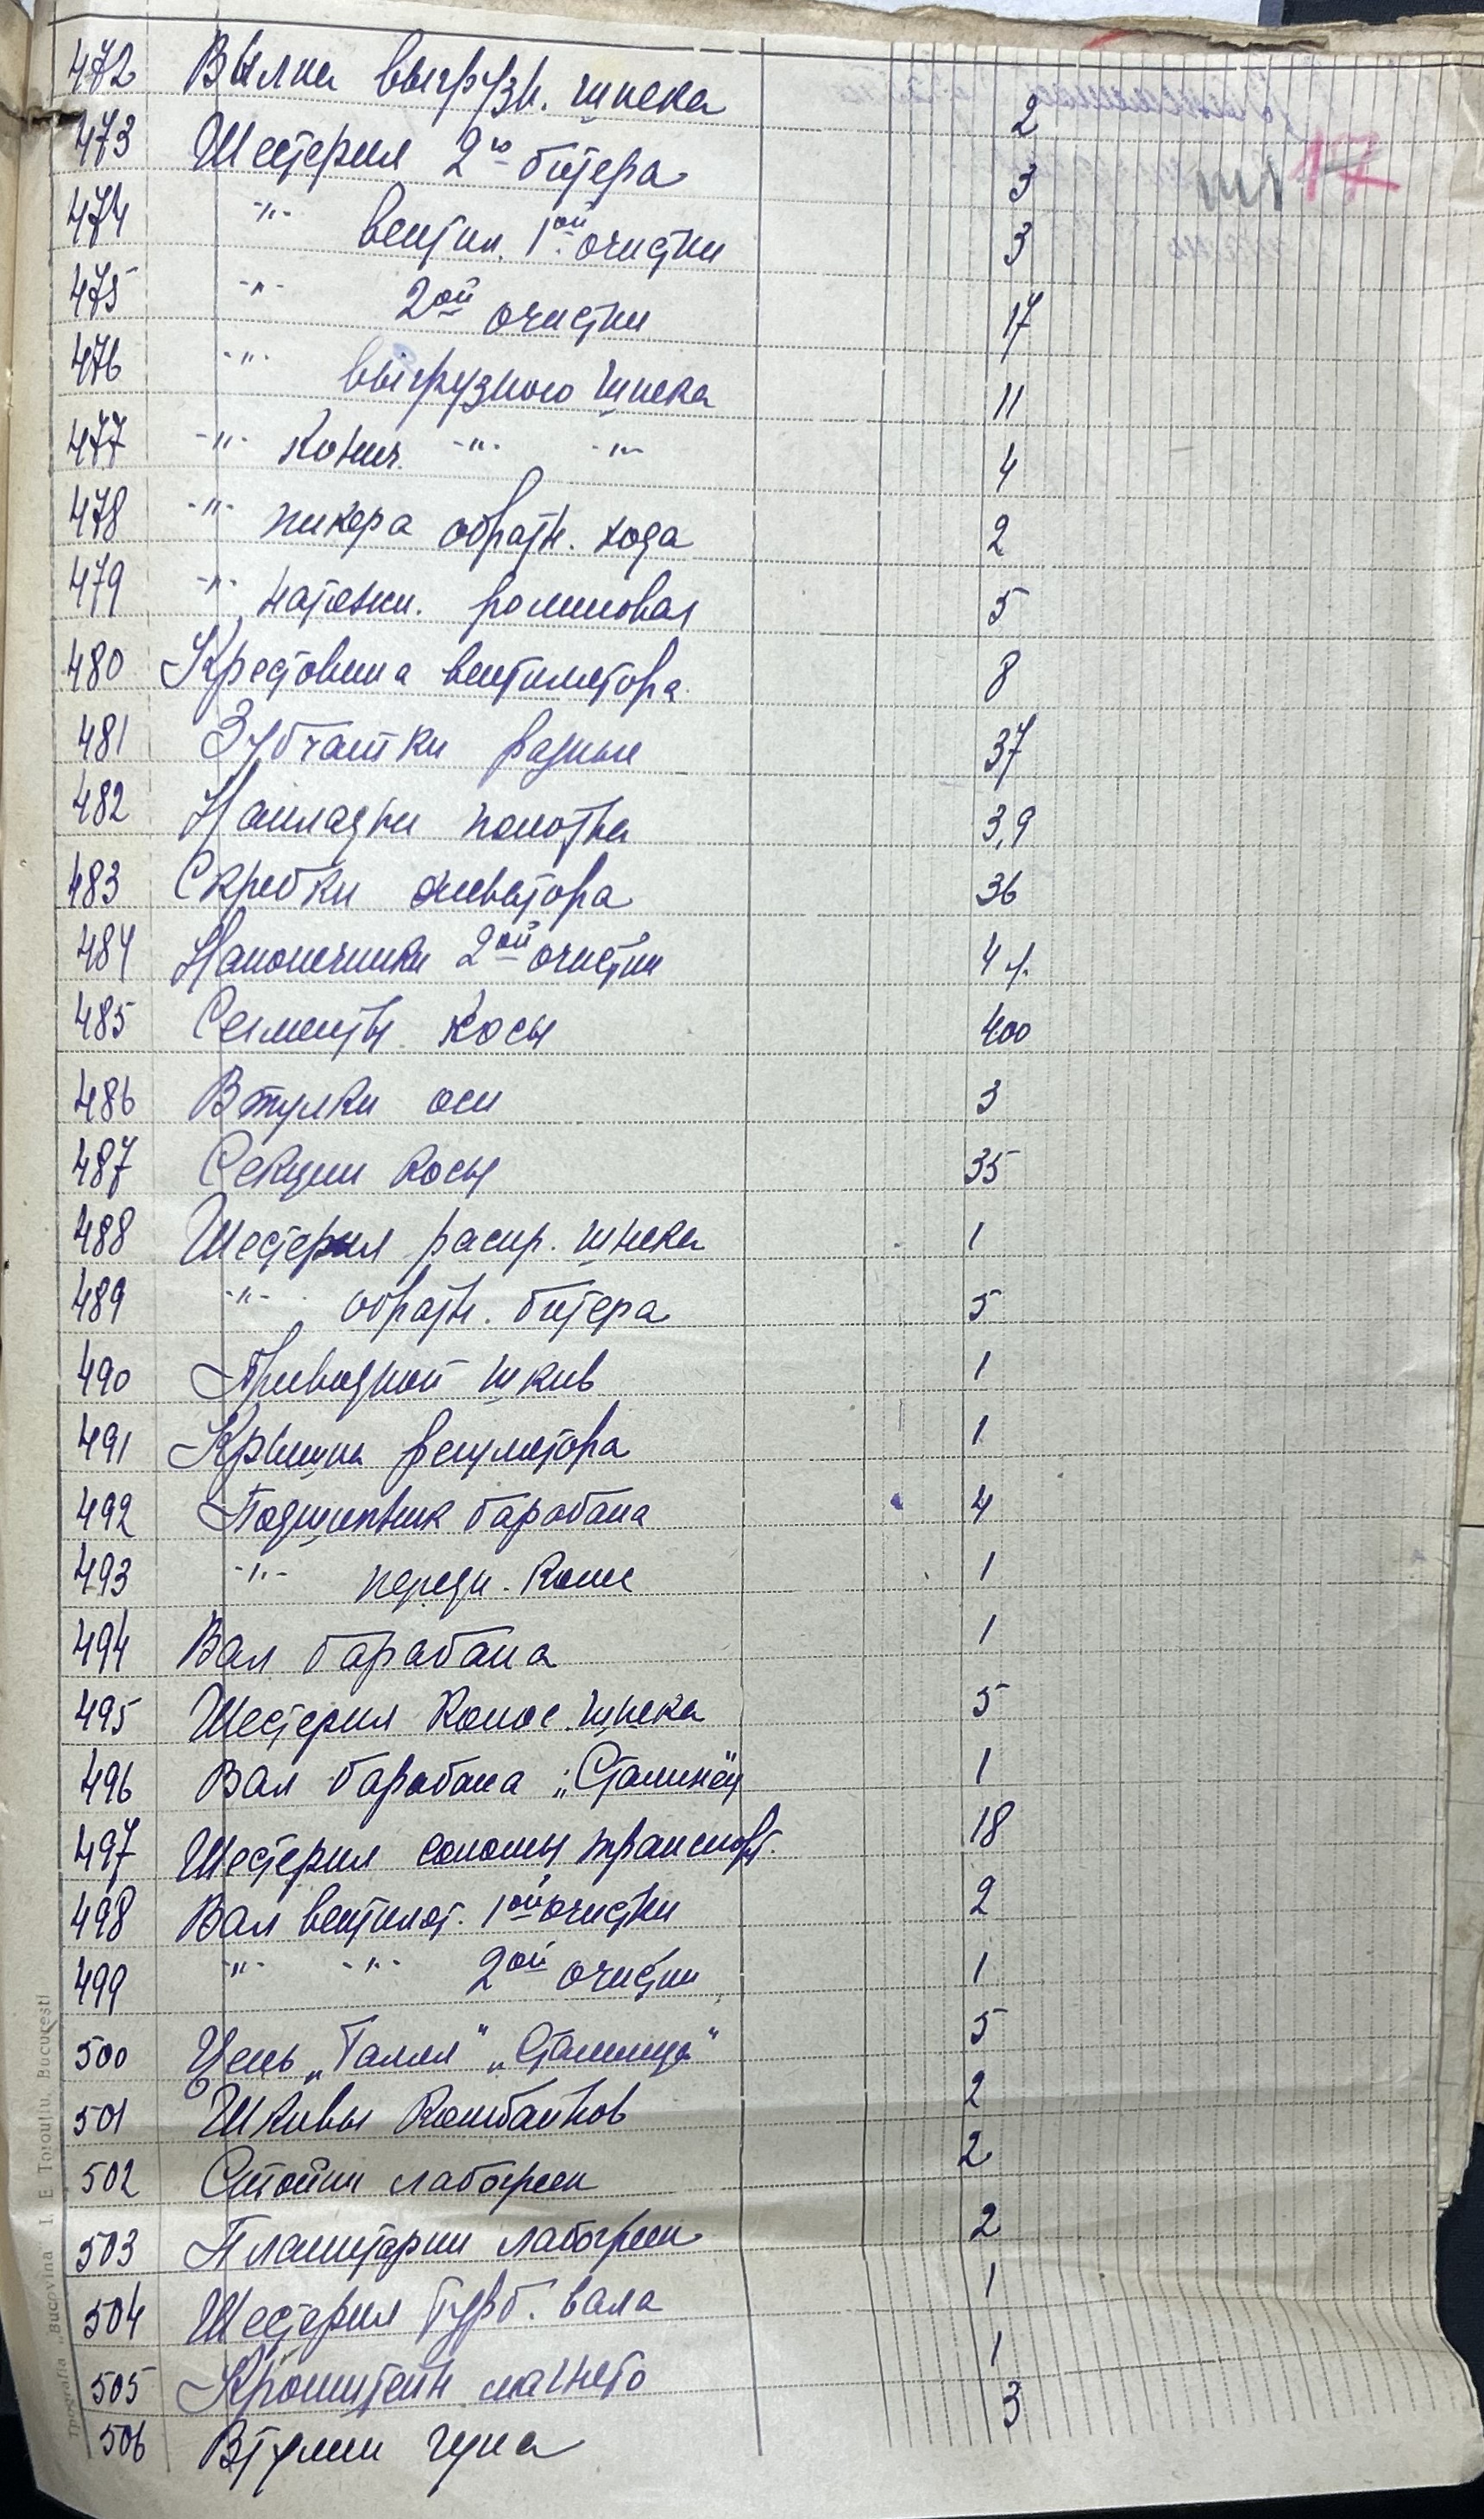 472 Вилка выгрузн. шнека 2
473 Шестерня 2го битера 3
17
474 -"- вентил. 1ой очистки 3
475 -"- 2ой очистки 17
476 -"- выгрузного шнека 11
477 -"- конич. -"- -"- 4
478 -"- пикера обратн. хода 2
479 -"- натяжн. роликовая 5
480 Крестовина вентилятора 8
481 Зубчатки разные 37
482 Накладки полотна 3,9
483 Скребки элеватора 36
484 Наконечники 2ой очистки 4
485 Сегменты косы 400
486 Втулки оси 3
487 Секции косы 35
488 Шестерня распр. шнека 1
489 -"- обратн. битера 5
490 Приводной шкив 1
491 Крышка регулятора 1
492 Подшипник барабана 4
493 -"- передн. 1
494 Вал барабана 1
495 Шестерня колос. шнека 5
496 Вал барабана „Сталинец" 1
497 Шестерня соломы транспорт. 18
498 Вал вентилят. 1ой очистки 2
499 -"- -"- 2ой очистки 1
500 Цепь „Галля" „Сталинца" 5
501 Шкивы комбайнов 2
502 Стойки лабогрейки 2
503 Планитарки лабогрейки 2
504 Шестерня турб. вала 1
505 Кронштейн магнето 1
506 Втулки 3
Tipografia „Bucovina" I. E. Torouţiu, Bucureşti